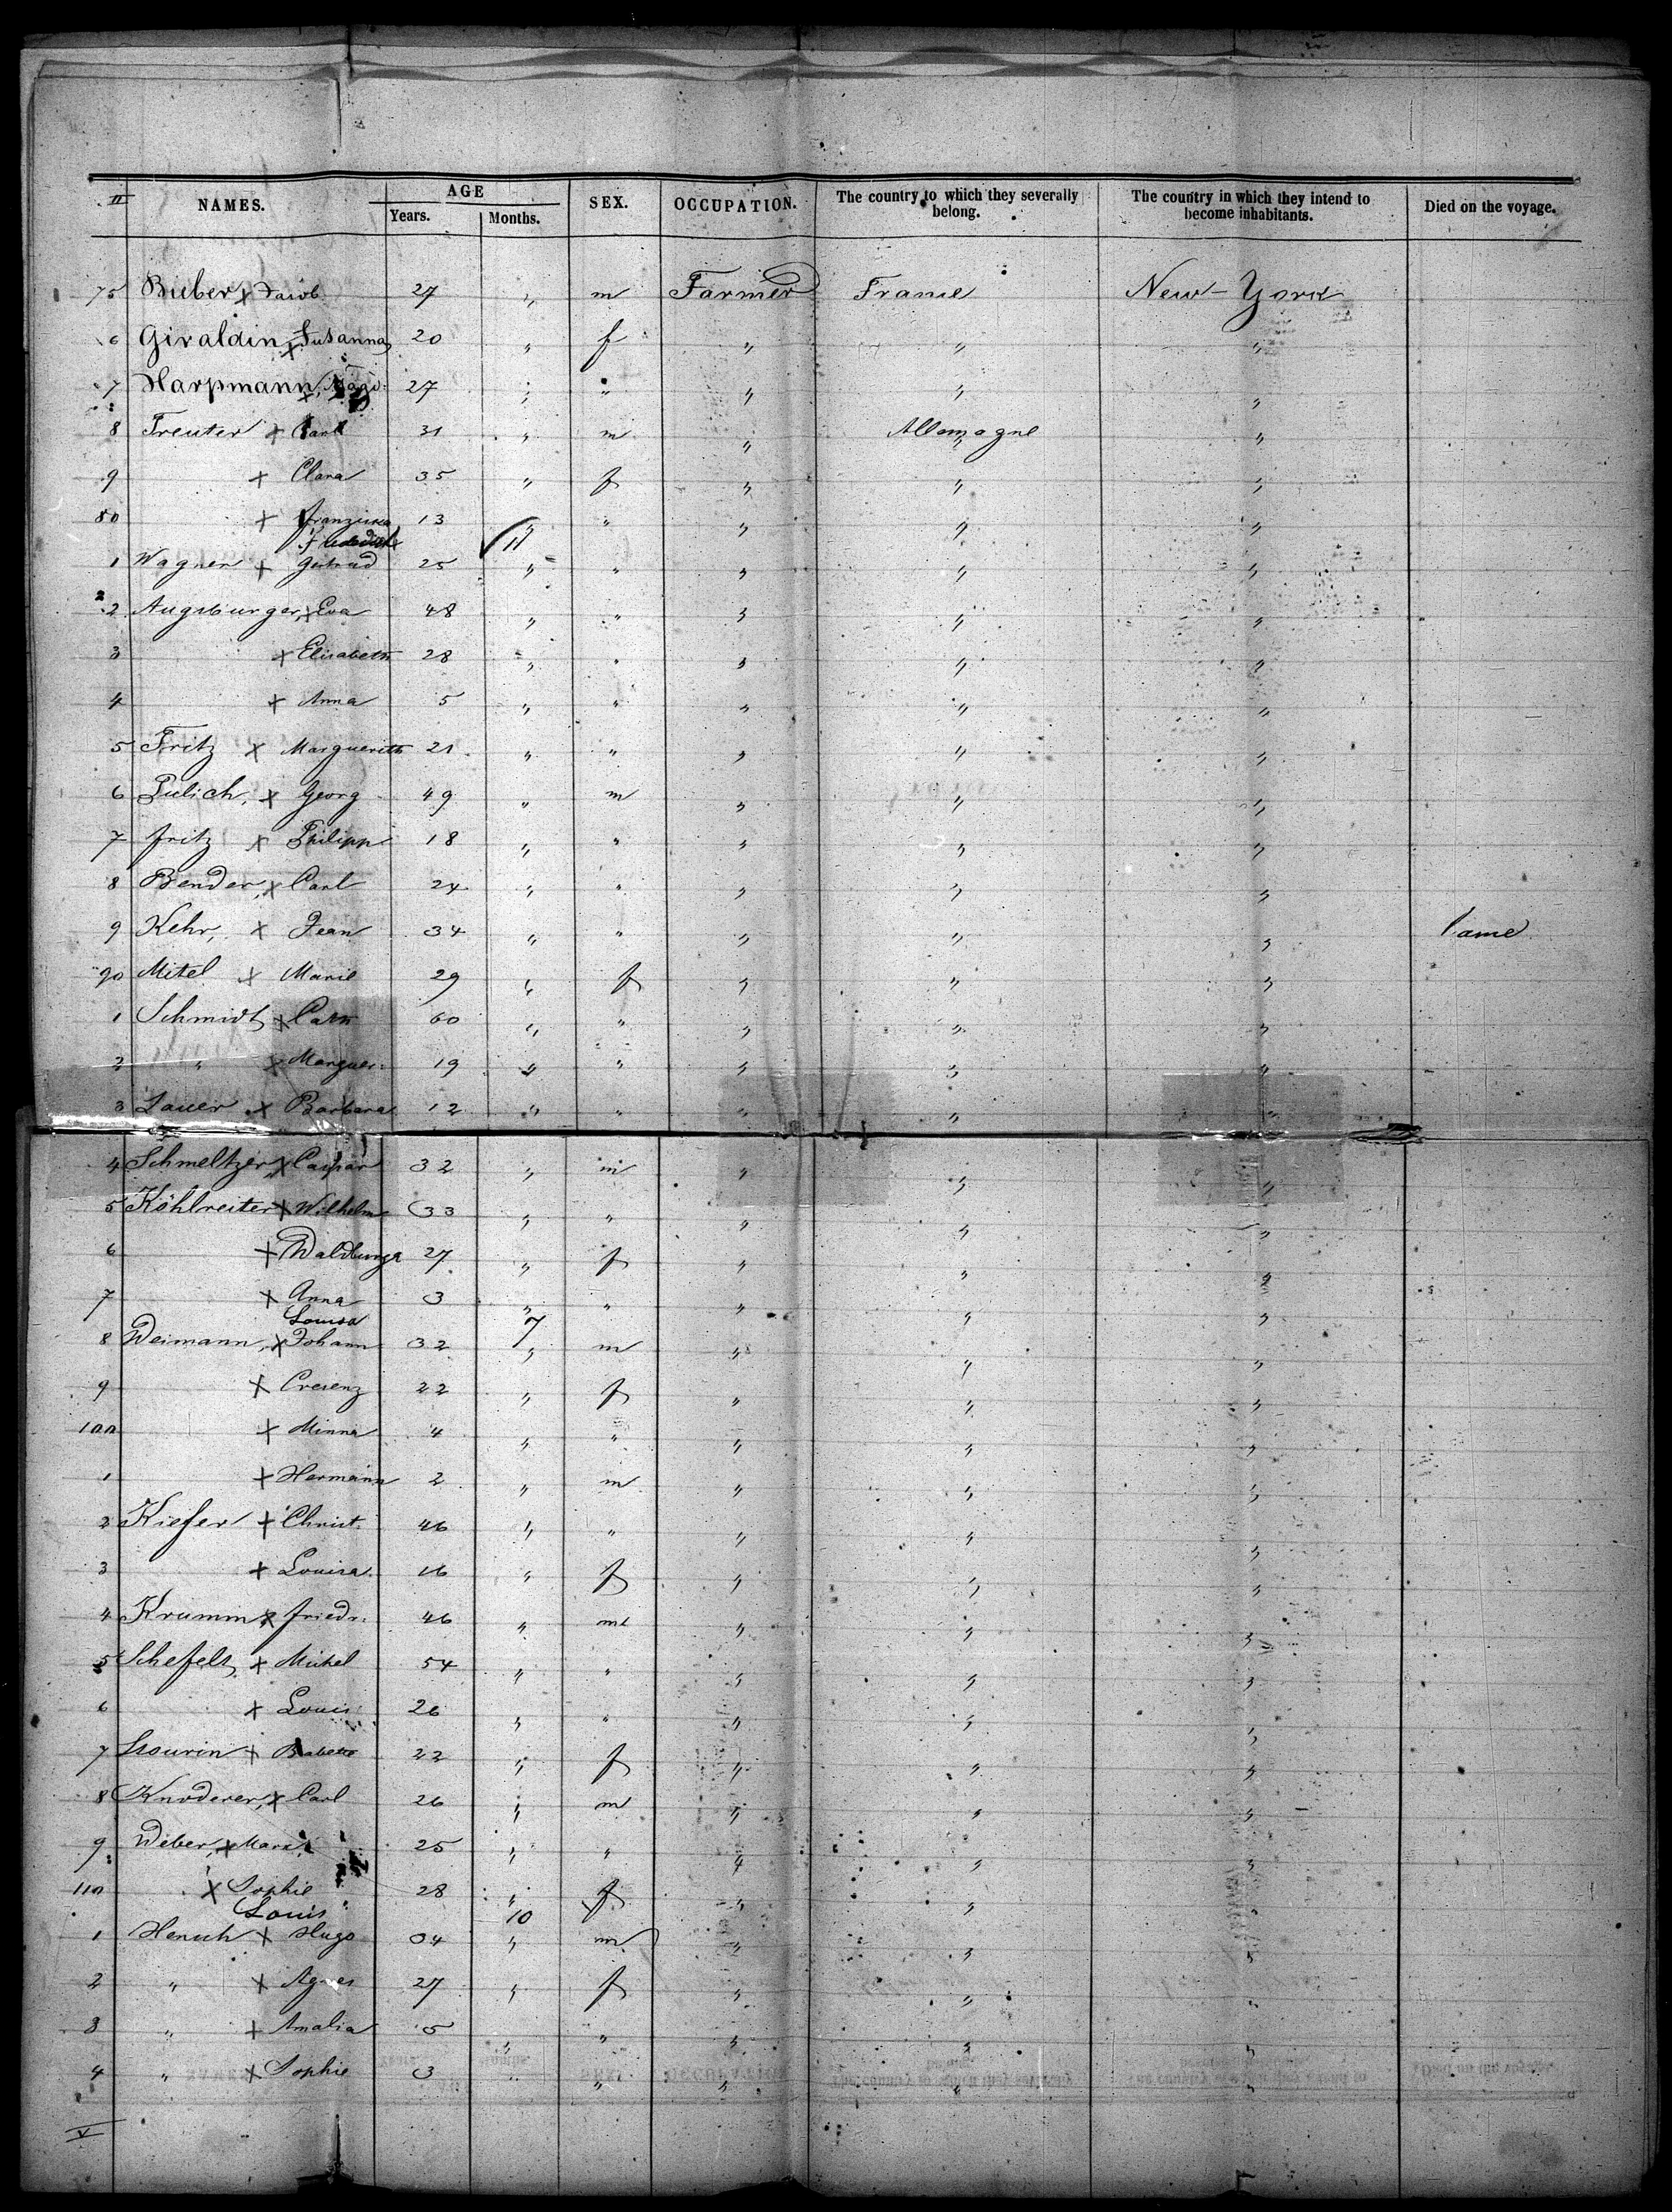 II NAMES. AGE Years. Months. SEX. OCCUPATION. The country to which they severally belong. The country in which they intend to become inhabitants. Died on the voyage.
75 Bieber x Jacob 27 " m Farmer France New-York
6 Giraldin, x Susanna 20 " f " " "
7 Harpmann, x Magd: 27 " " " " "
8 Treuter x Carl 31 " m " Allemagne "
9 x Clara 35 " f " " "
80 x Franziska 13 " " " " "
Frederick 11
1 Wagner x Gertrud 25 " " " " "
2 Augsburger, x Eva 48 " " " " "
3 x Elisabeth 28 " " " " "
4 x Anna 5 " " " " "
5 Fritz x Marguerith 21 " " " " "
6 Pulich, x Georg 49 " m " " "
7 Fritz x Philipp 18 " " " " "
8 Bender, x Carl 24 " " " " "
9 Kehr, x Jean 34 " " " " " lame
90 Mitel x Marie 29 " f " " "
1 Schmidt x Cath 60 " " " " "
2 " x Marguer: 19 " " " " "
3 Lauer x Barbara 12 " " " " "
4 Schmeltzer x Caspar 32 " m " " "
5 Köhlreiter x Wilhelm 33 " " " " "
6 x Waldburga 27 " f " " "
7 x Anna 3 " " " " "
Louisa 7
8 Weimann, x Johann 32 " m " " "
9 x Cresenz 22 " f " " "
100 x Minna 4 " " " " "
1 x Hermann 2 " m " " "
2 Kiefer x Christ. 46 " " " " "
3 x Louisa 16 " f " " "
4 Krumm x Friedr: 46 " m " " "
5 Schefels x Michel 54 " " " " "
6 x Louis 26 " " " " "
7 x Babette 22 " f " " "
8 Knoderer, x Carl 26 " m " " "
9 Weber, x Marx 25 " " " " "
110 x Sophie 28 " f " " "
Louis " 10
1 Hensch x Hugo 34 " m " " "
2 " x Agnes 27 " f " " "
3 " x Amalia 5 " " " " "
4 " x Sophie 3 " " " " "
V